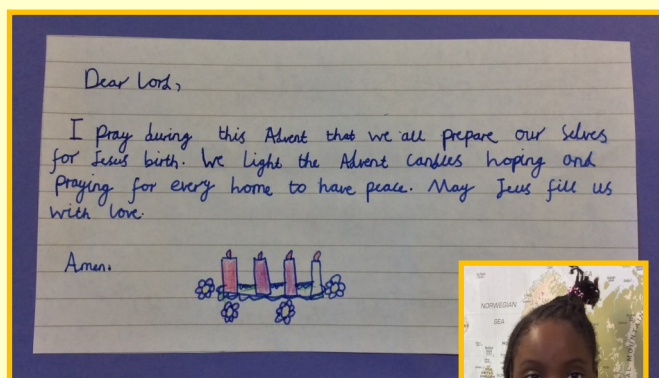 Dear Lord,
I pray during this Advent that we all prepare our selves
for Jesus birth. We light the Advent candles hoping and
praying for every home to have peace. May Jeus fill us
with love.
Amen.
NORWEGIAN
SEA